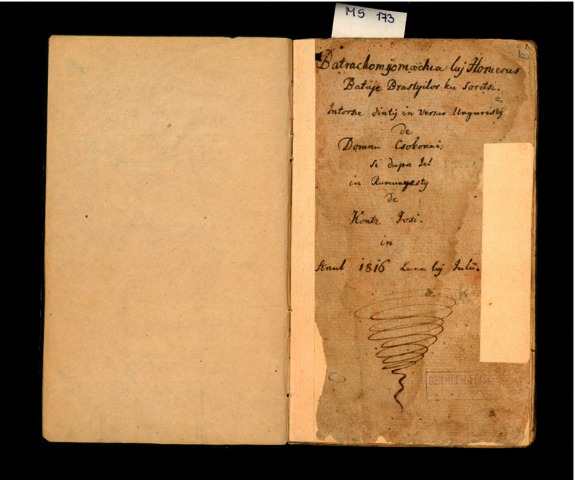 MS 173
Batrachomyomachia luj Homerus
Bataje Brastyilor ku Soretsi.
Intorse dintij in versur Ungureisty
de
Domnu Csokonai,
si dupa Iel
in Rumunyesty
de
Kontz Josi.
in
Anul 1816 Luna luj Julii.